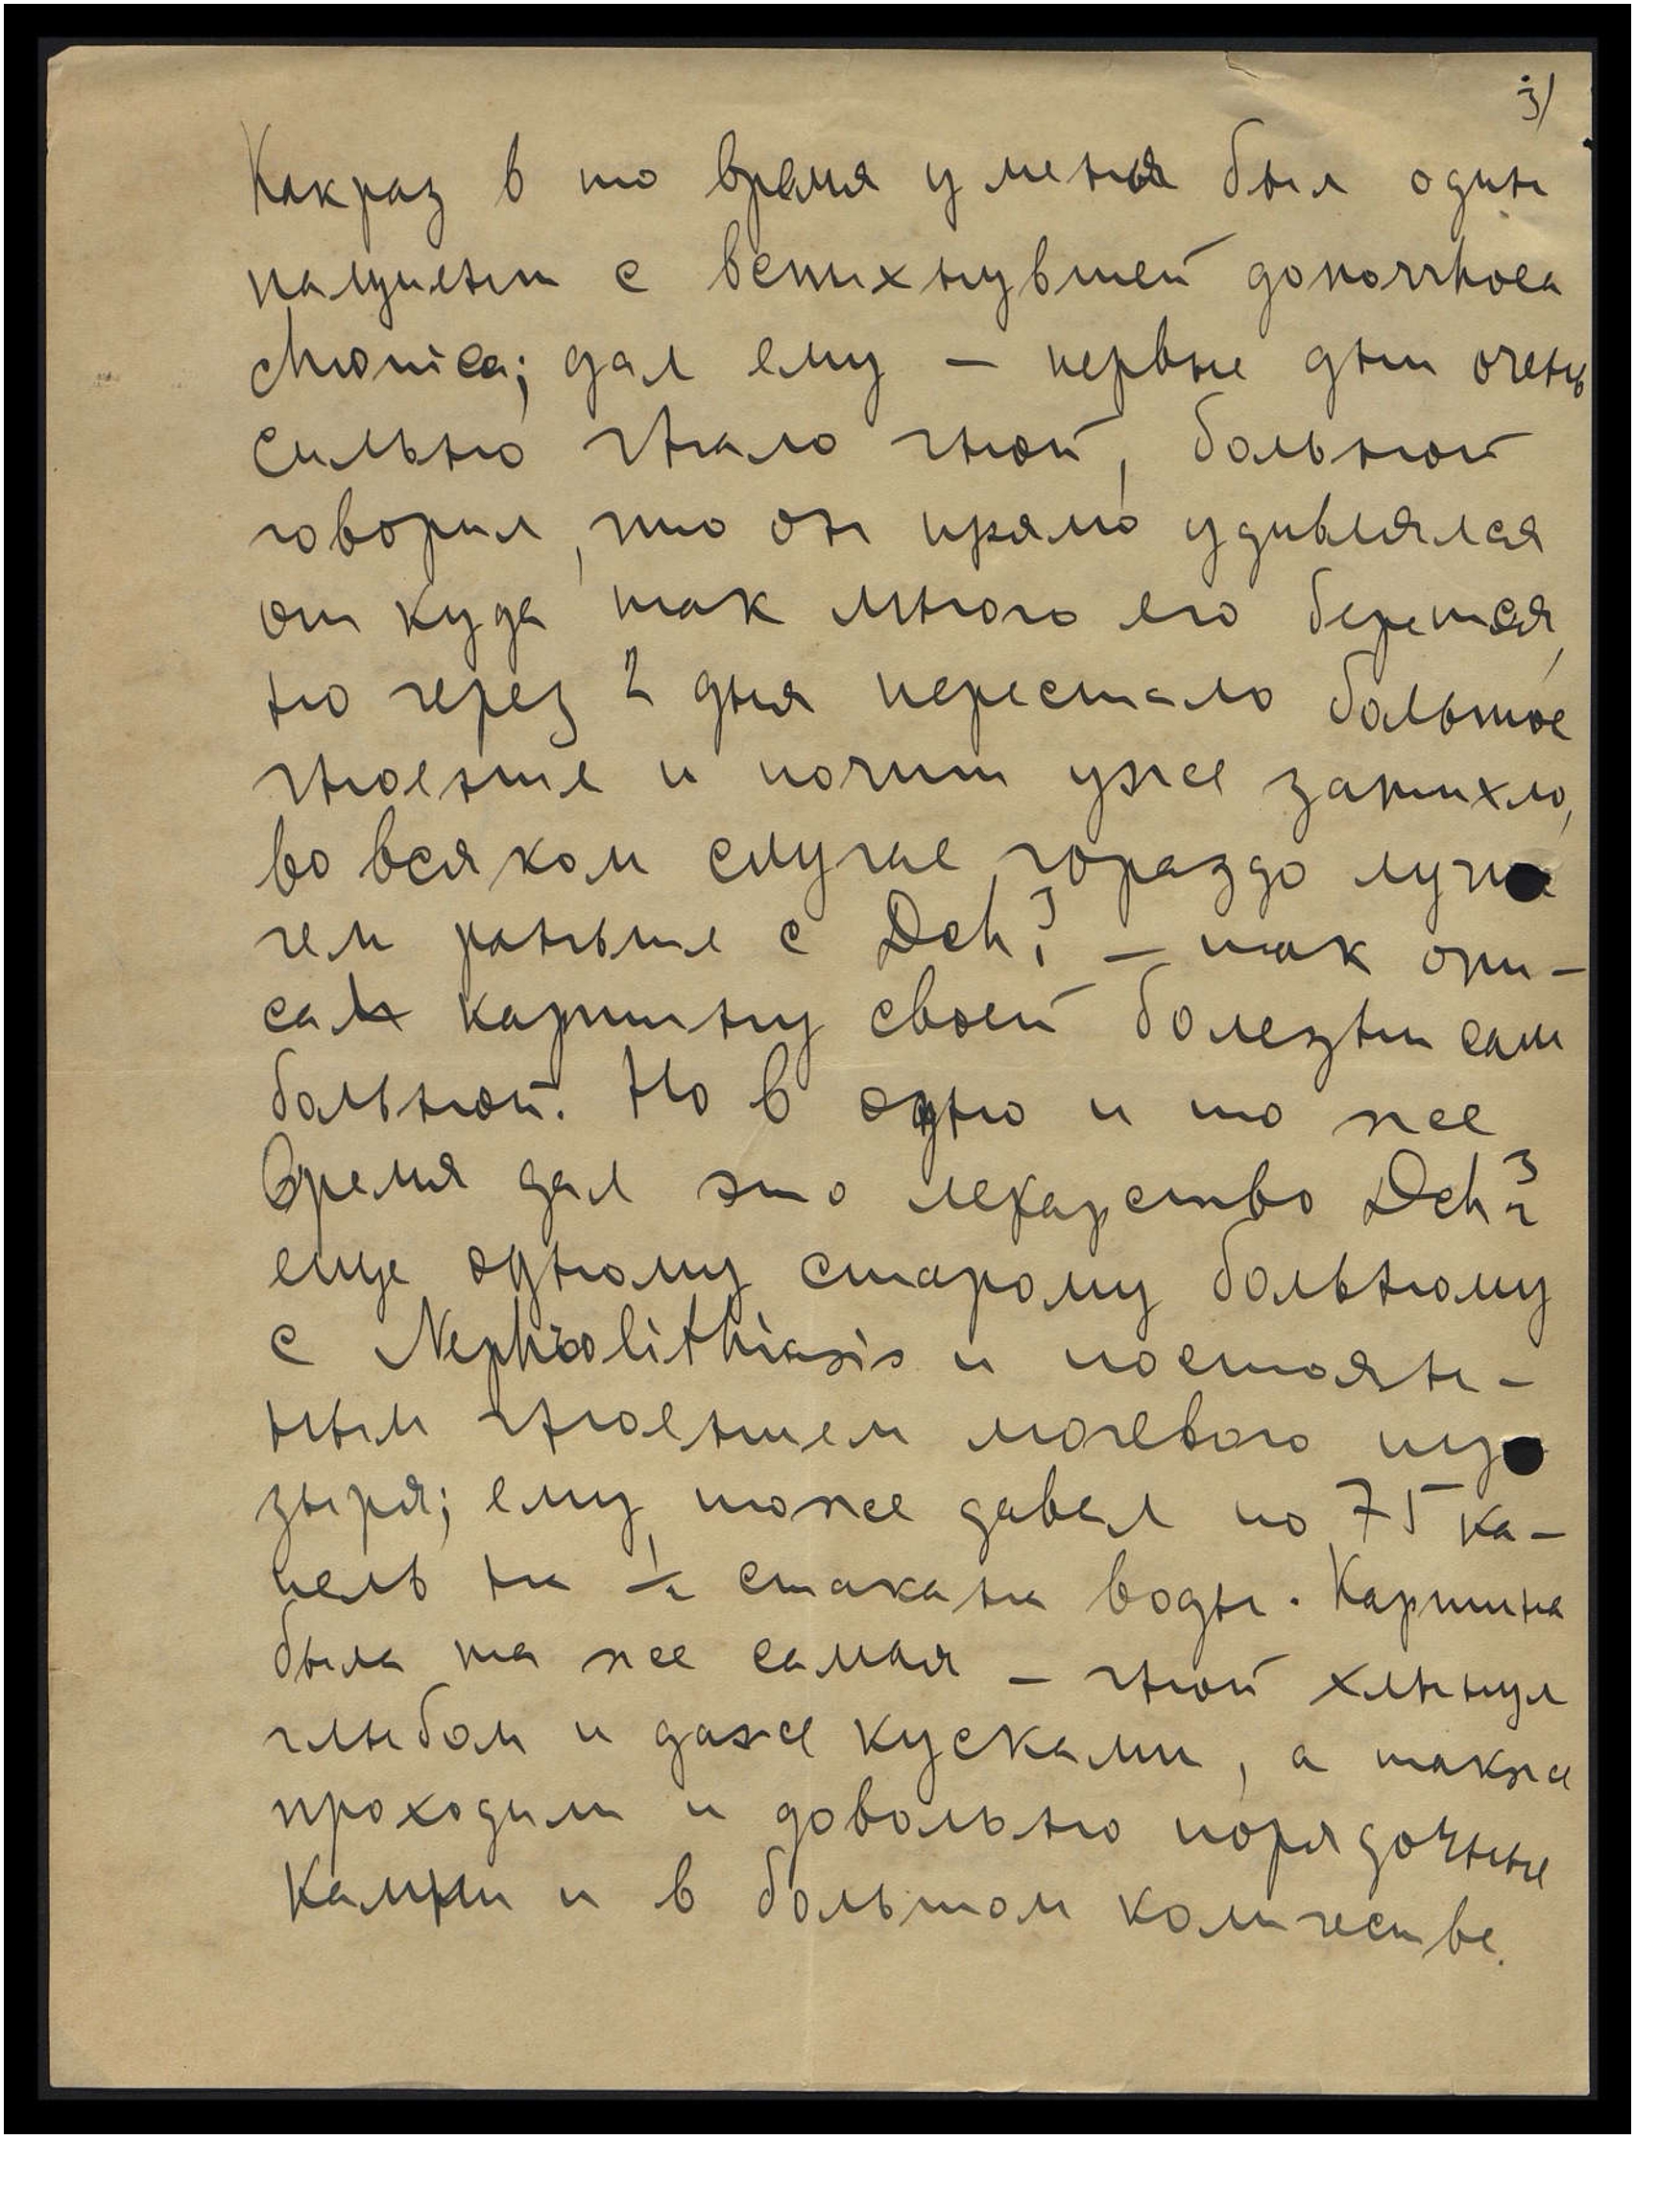 3)
Какраз в то время у меня был один
пациент с вспыхнувшей gonorrhoea
chronica; дал ему — первые дни очень
сильно гнало гной, больной
говорил, что он прямо удивлялся
от куда так много его берется,
но через 2 дня перестало большое
гноение и почти уже затихло,
во всяком случае гораздо лучше
чем раньше с Dch 3/1 — так опи-
сал картину своей болезни сам
больной. Но в одно и то же
время дал это лекарство Dch 3/2
еще одному старому больному
с Nephrolithiasis и постоян-
ным гноением мочевого пу
зыря; ему тоже давал по 75 ка-
пель на ½ стакана воды. Картина
была та же самая — гной хлынул
глыбом и даже кусками, а также
проходили и довольно порядочные
Камни и в большом количестве.